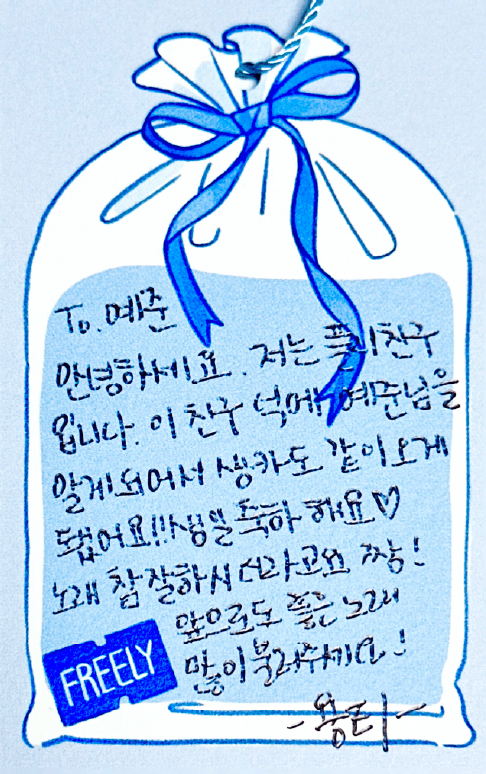 To. 예준
안녕하세요. 저는 플리친구
입니다. 이 친구 덕에 예준님을
알게되어서 생카도 같이오게
됐어요!! 생일축하 해요♡
노래 참 잘하시더라고요 짱!
앞으로도 좋은 노래
많이불러주세요!
FREELY